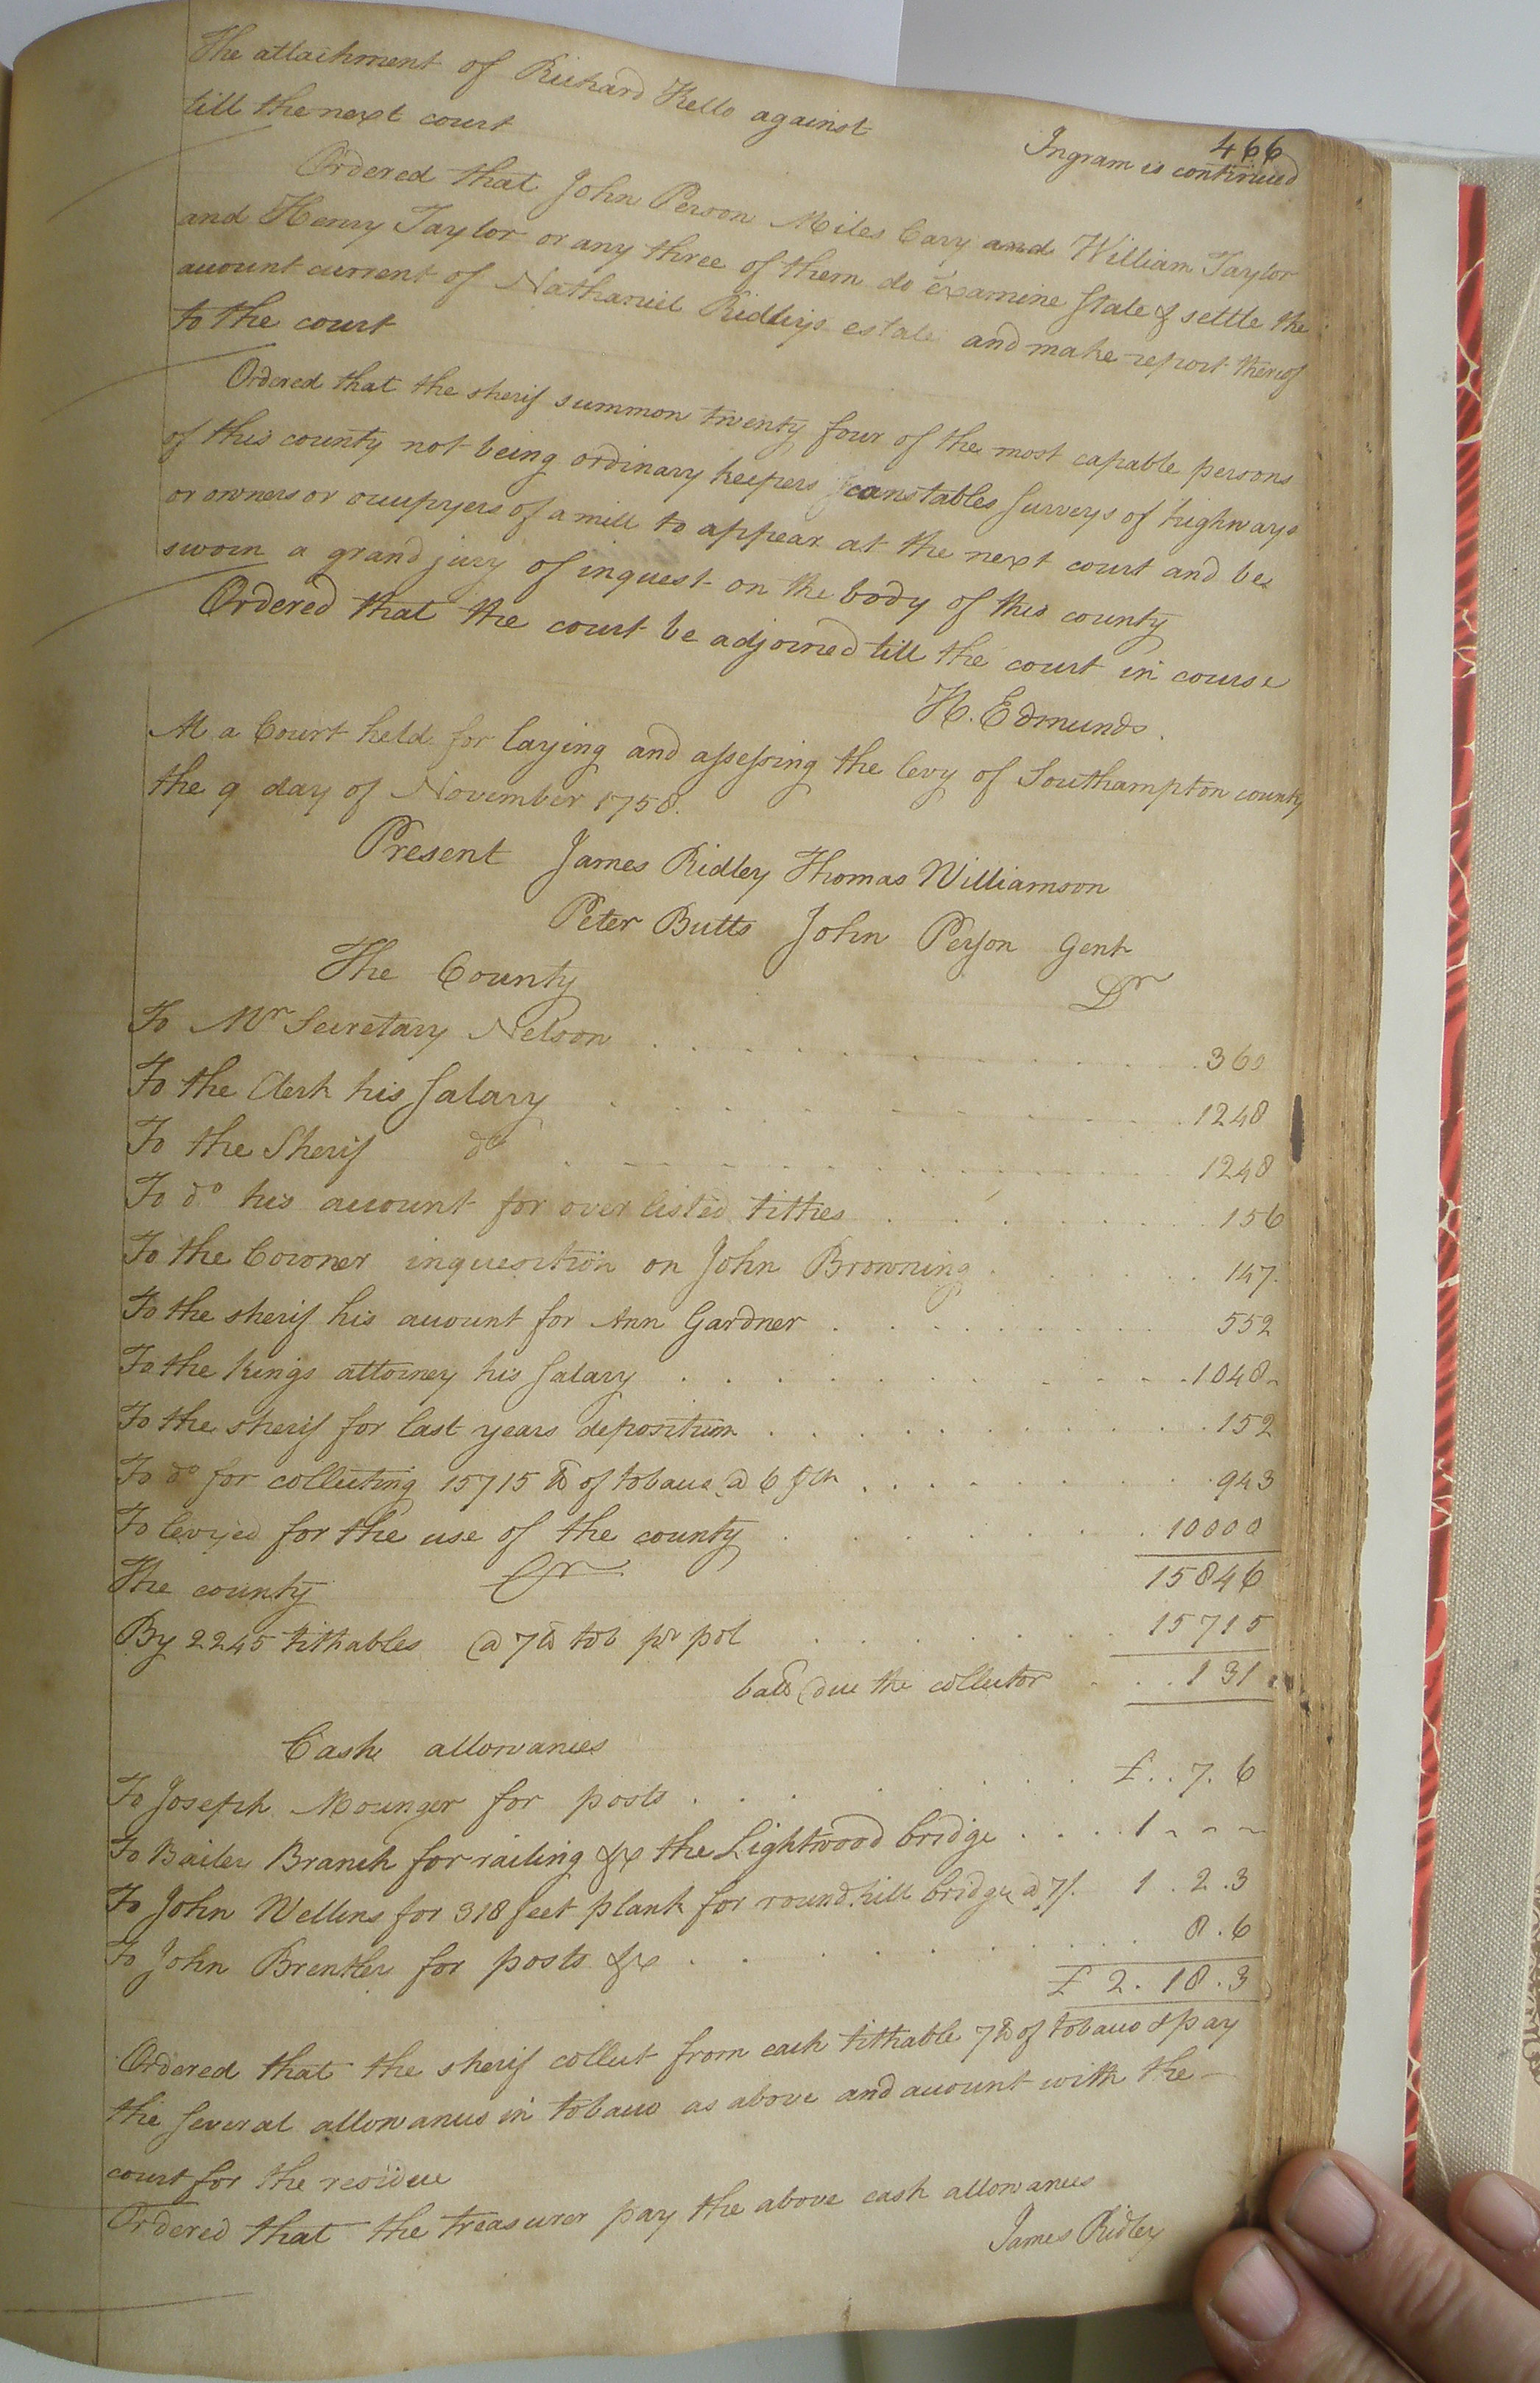 466
The attachment of Richard Kello against Ingram is continued
till the next court
Ordered that John Person Miles Cary and William Taylor
and Henry Taylor or any three of them do examine state & settle the
account current of Nathaniel Ridleys estate and make report thereof
to the court
Ordered that the sherif summon twenty four of the most capable persons
of this county not being ordinary keepers constables surveys of highways
or owners or occupyers of a mill to appear at the next court and be
sworn a grand jury of inquest on the body of this county
Ordered that the court be adjorned till the court in course
H. Edmunds.
At a Court held for laying and assessing the levy of Southampton county
the 9 day of November 1758.
Present James Ridley Thomas Williamson
Peter Butts John Person Gent
The County Dr
To Mr Secretary Nelson 360
To the Clerk his salary 1248
To the Sherif do 1248
To do his account for over listed tithes 156
To the Coroner inquesition on John Browning 147
To the sherif his account for Ann Gardner 552
To the kings attorney his salary 1048
To the sherif for last years deposition 152
To do for collecting 15715 lb of tobacco @ 6 pCt 943
To levyed for the use of the county 10000
15846
The county Cr
By 2245 tithables @ 7lb tob pr pol 15715
balle due the collector 131
Cash allowances
To Joseph Mounger for posts £ . . 7. 6
To Bailer Branch for railing &c the Lightwood bridge 1 - - -
To John Wellins for 318 feet plank for round hill bridge @ 7/. 1 . 2 . 3
To John Brentley for posts &c 8 . 6
£ 2 . 18 . 3
Ordered that the sherif collect from each tithable 7lb of tobacco & pay
the several allowances in tobacco as above and account with the
court for the residue
Ordered that the treasurer pay the above cash allowances
James Ridley